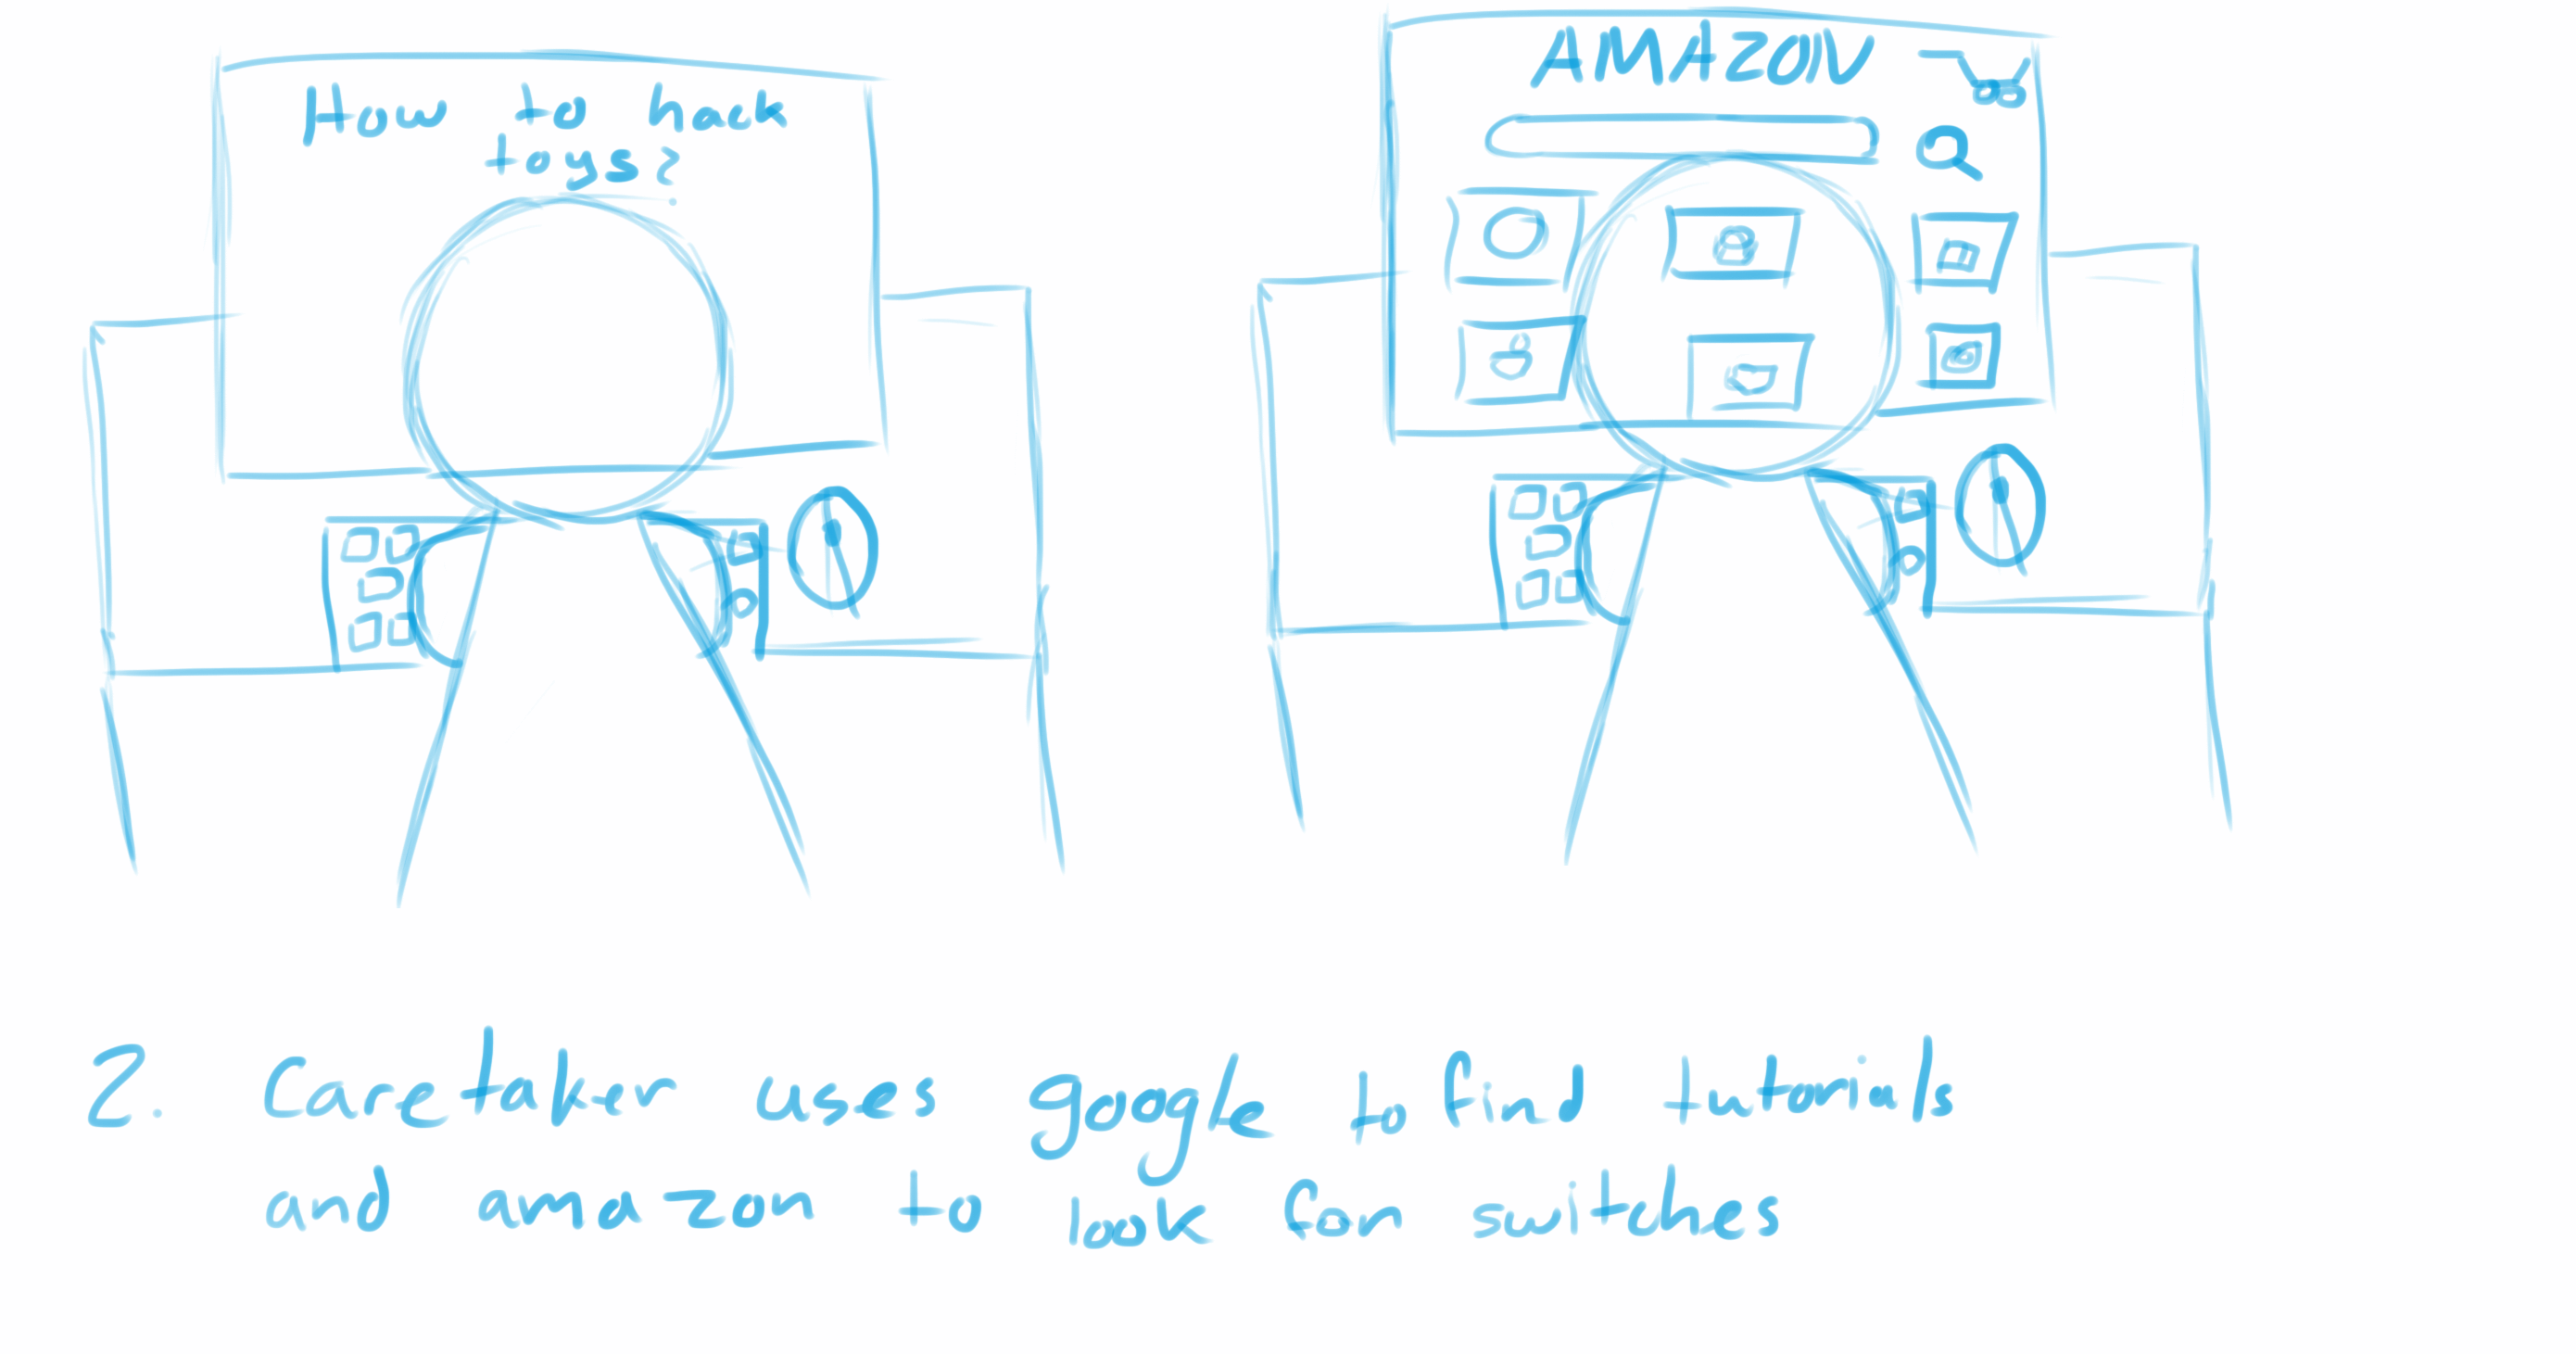 How to hack
toys?
AMAZON
2. Caretaker uses google to find tutorials
and amazon to look for switches